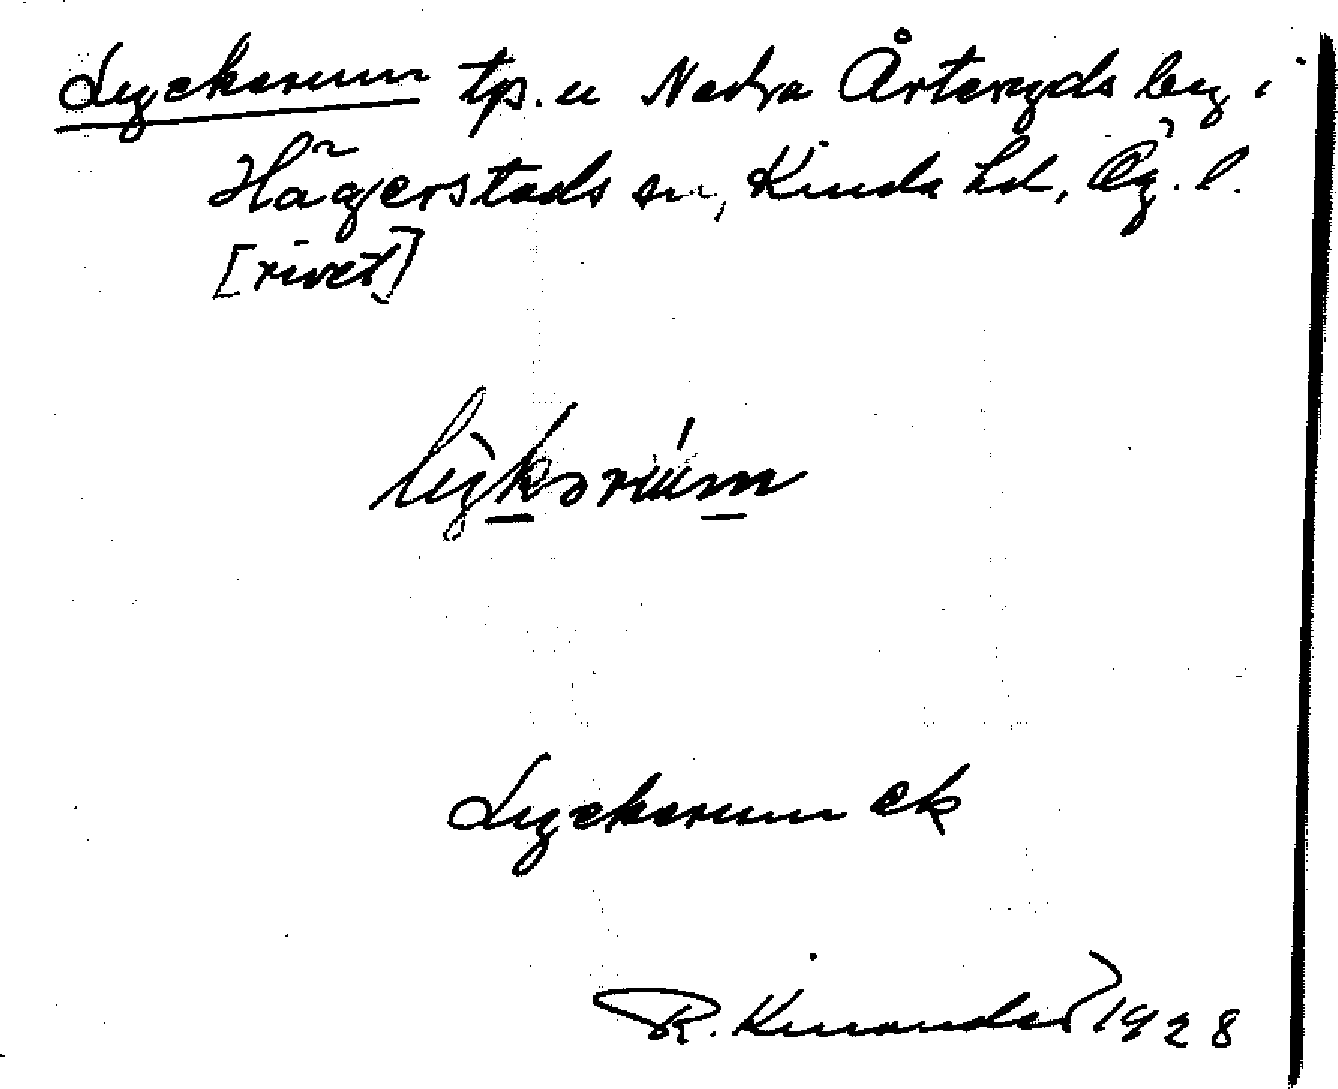 Lyckorum tp. u Nedra Årteryds by i
Hägerstads sn, Kinda hd, Ög. l.
[rivet]
lyksorúm
Lyckorum ek
R. Kinander 1928